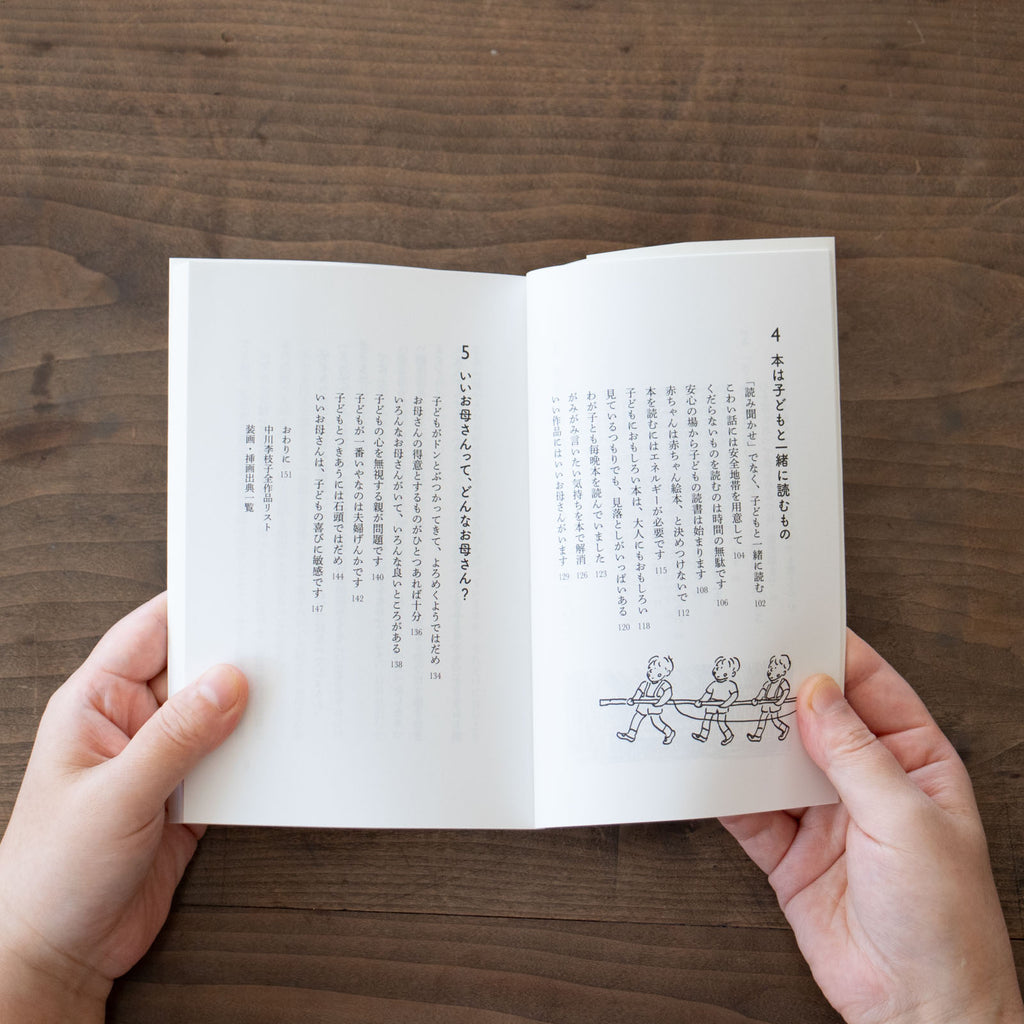 4 本は子どもと一緒に読むもの
「読み聞かせ」でなく、子どもと一緒に読む 102
こわい話には安全地帯を用意して 104
くだらないものを読むのは時間の無駄です 106
安心の場から子どもの読書は始まります 108
赤ちゃんは赤ちゃん絵本、と決めつけないで 112
本を読むにはエネルギーが必要です 115
子どもにおもしろい本は、大人にもおもしろい 118
見ているつもりでも、見落としがいっぱいある 120
わが子とも毎晩本を読んでいました 123
がみがみ言いたい気持ちを本で解消 126
いい作品にはいいお母さんがいます 129
5 いいお母さんって、どんなお母さん?
子どもがドンとぶつかってきて、よろめくようではだめ 134
お母さんの得意とするものがひとつあれば十分 136
いろんなお母さんがいて、いろんな良いところがある 138
子どもの心を無視する親が問題です 140
子どもが一番いやなのは夫婦げんかです 142
子どもとつきあうには石頭ではだめ 144
いいお母さんは、子どもの喜びに敏感です 147
おわりに 151
中川李枝子全作品リスト
装画・挿画出典一覧